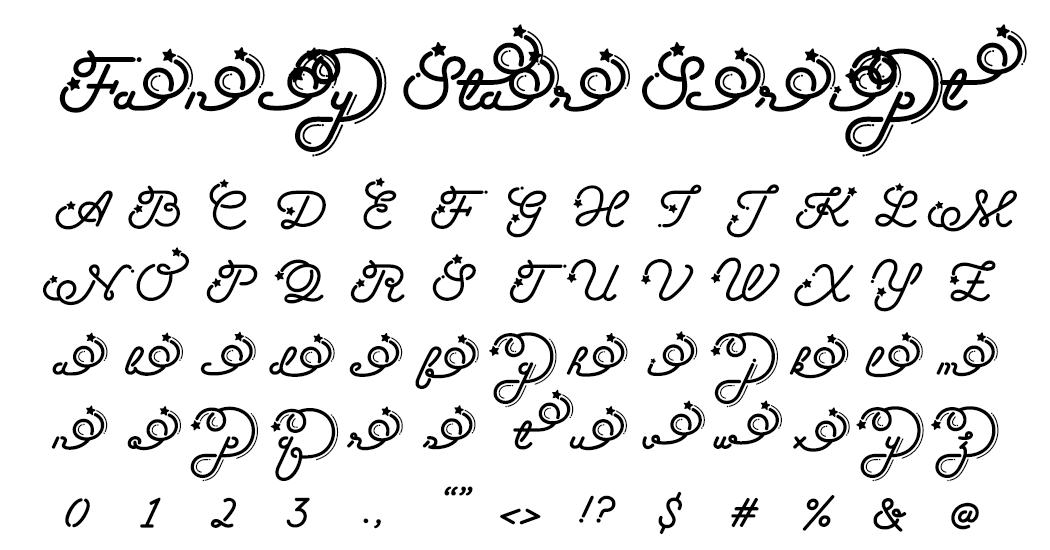 Fancy Stars Script
A B C D E F G H I J K L M
N O P Q R S T U V W X Y Z
a b c d e f g h i j k l m
n o p q r s t u v w x y z
0 1 2 3 ., “” <> !? $ # % & @